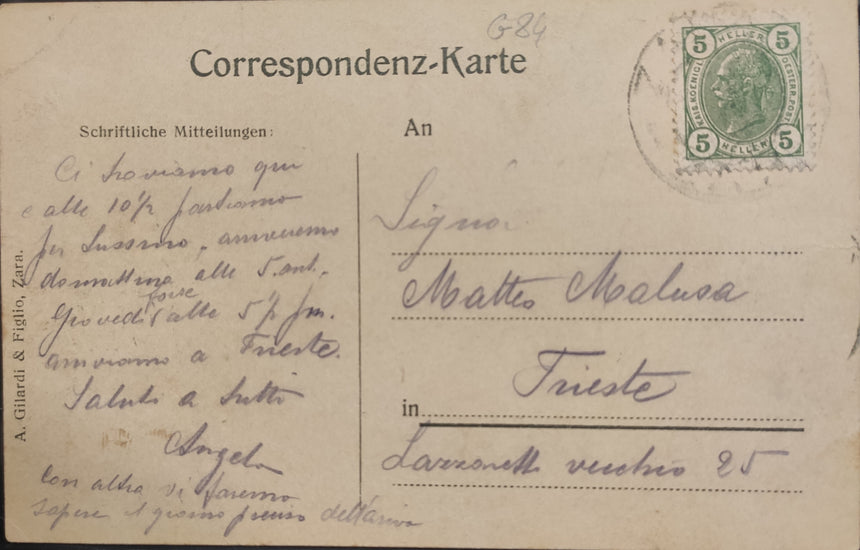 G84
Correspondenz-Karte
5 HELLER 5
KAIS. KOENIGL. OESTERR. POST
5 HELLER 5
Schriftliche Mitteilungen:
Ci troviamo qui
e alle 10½ partiamo
per Lussino, arriveremo
domattina alle 5. ant.
Giovedì forse alle 5½ pm.
arriviamo a Trieste.
Saluti a tutti
Angelo
Con altra vi faremo
sapere il giorno preciso dell'arrivo
A. Gilardi & Figlio, Zara.
An
Signor
Matteo Malusa
in Trieste
Lazzaretto vecchio 25